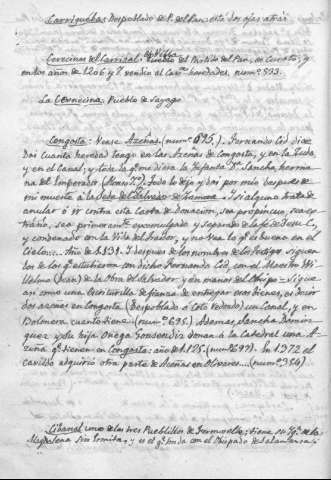 Carriguehas Despoblado de P. del Pan: esta dos ojas atrás
es Villa
Cerecinos del Carrizal: Pueblo del Partido del Pan, en Cuarto, y
en los años de 1206 y 7. vendio al Cav.º heredades, num.º 533.
La Cernecina, Pueblo de Sayago
Congosta: Vease Azeñas (num.º 695.). Fernando Cid dice
Doi cuanta heredad tengo en las Azeñas de Congosta, y en la Zuda,
y en el Canal; y toda la q.e me diera la Infanta D.ª Sancha, herma-
na del Emperador (Alonso 7.º) Todo lo dejo y doi por mio despues de
mi muerte à la Sede del Salvador de Zamora. I si alguno trata de
anular ó ir contra esta Carta de Donacion, sea propincuo, sea ex-
traño, sea primeram.te excomulgado y separado de la fe de Jesu C.,
y condenado con la Vida del traidor, y no vea lo q.e es bueno en el
Cielo... Año de 1.151. I despues de los nombres de los testigos siguen
dos de los q.e estubieron con dicho Fernando Cid, con el Maestro Wi-
llelmo (Juan) de la Obra del Salvador, y en manos del Obispo = Sigue
asi como una escritura de fianza de entregar esos bienes, es decir
dos azeñas en Congosta (Despoblado ó Coto redondo) un Canal, y en
Bolmera cuanto tiene (num.º 695.) Ademas, Sancha Domin-
guez y su hija Oniega Gonsendiz donan à la Catedral una A-
zeña q.e tienen en Congosta: año de 1.125. (num.º 697). En 1372 el
cavildo adquirió otra parte de Azeñas en Olivares... (num.º 354)
Cibanal uno de los tres Pueblillos de Fermoselle: tiene su Yg.ª de la
Magdalena sin Ermita, y es el q.e linda con el Obispado de Salamanca